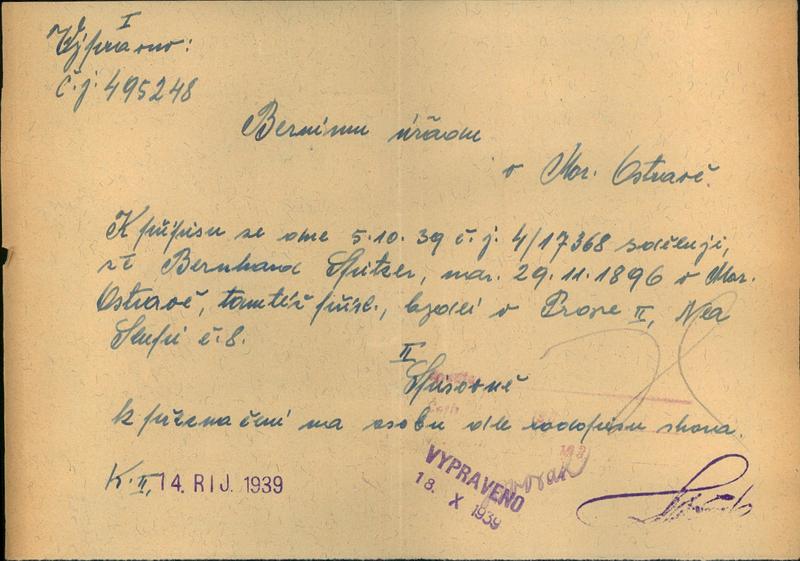 I
Výpravno:
č.j. 495248
Bernímu úřadu
v Mor. Ostravě.
K přípisu ze dne 5.10.39 č.j. 4/17368 sděluji,
že Bernhard Spitzer, nar. 29.11.1896 v Mor.
Ostravě, tamtéž přísl., bydlí v Praze II, Na
Slupi č. 8.
II
Spisovně
k přeznačení na osobu dle rodopisu shora.
K. II, 14. RIJ. 1939
VYPRAVENO
18. X 1939